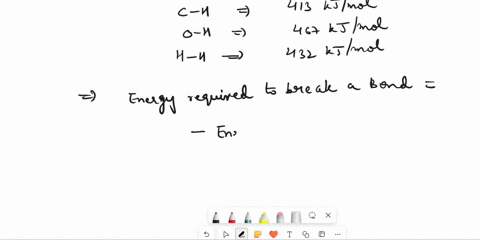 C-H ⇒ 413 kJ/mol
O-H ⇒ 467 kJ/mol
H-H ⇒ 432 kJ/mol
⇒ Energy required to break a Bond =
- En